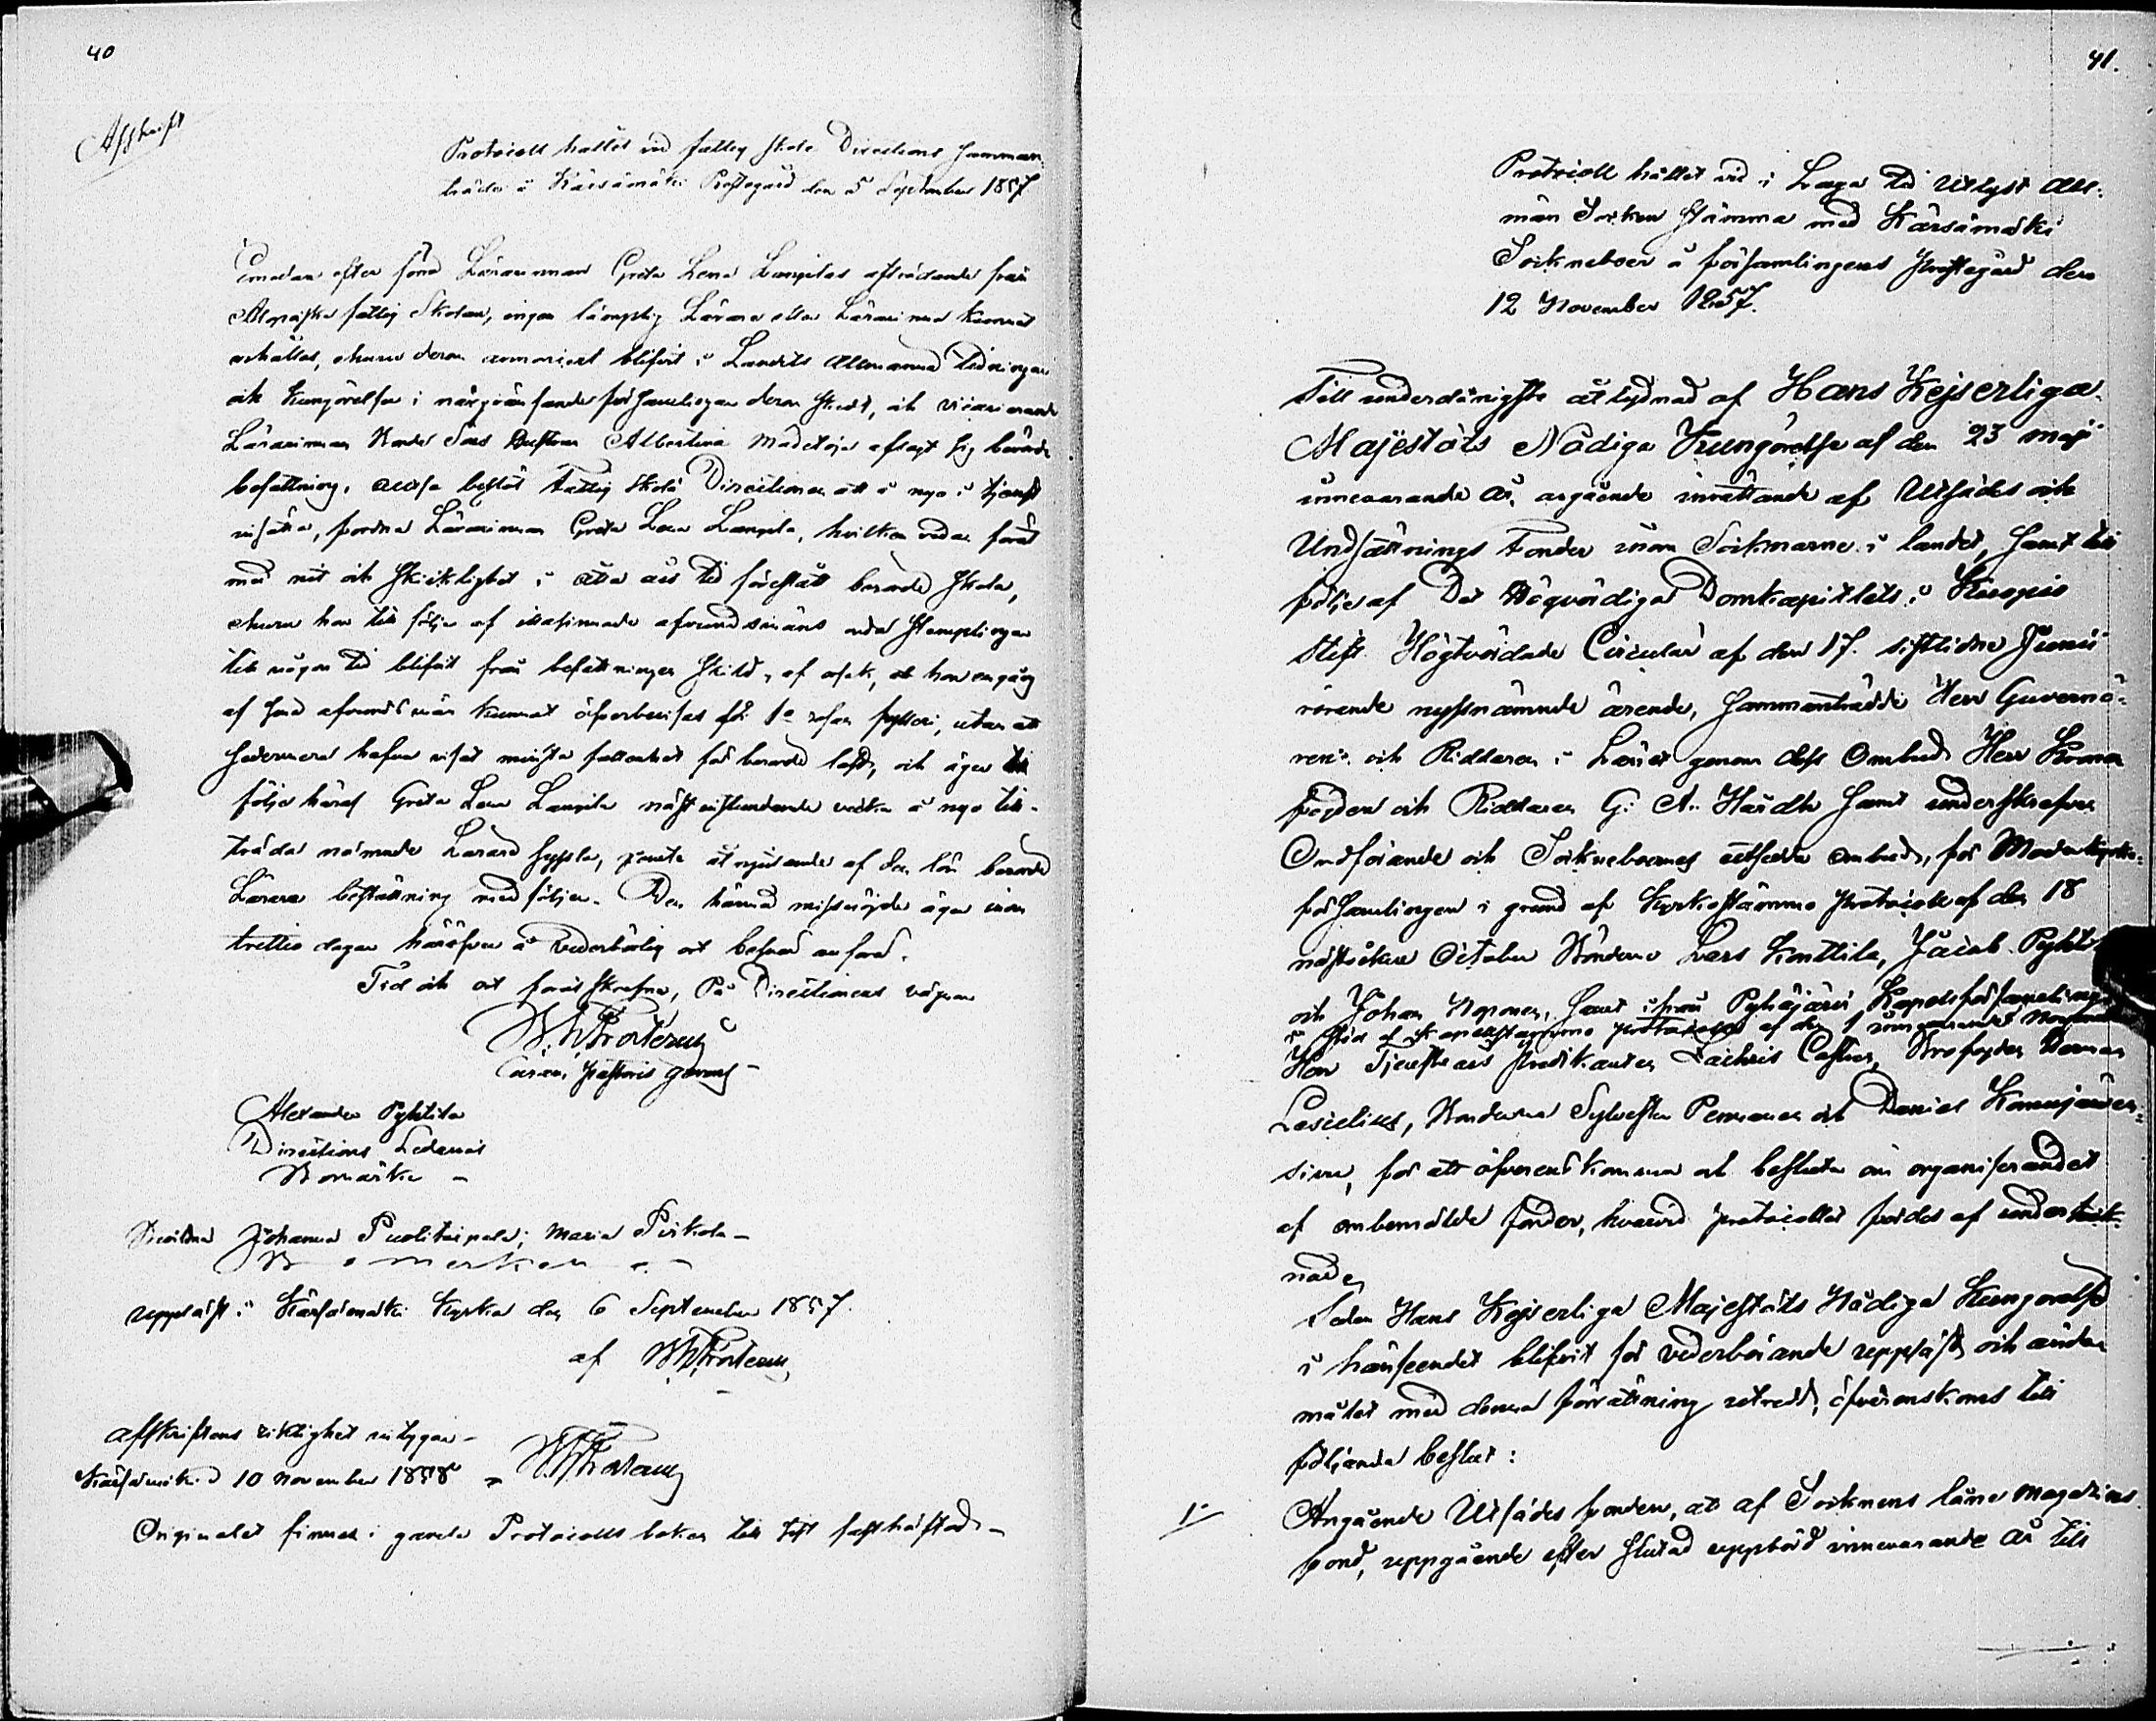 40
Afskrift
Protocoll hållet vid fattig skole Directions samman
träde å Kärsämäki Prestegård den 5 September 1857
Emedan efter förra Lärarinnan Greta Lena Langilas afträdande från
fattig Skolan, ingen lämplig Lärare eller Lärarinna kunnat
erhållas, ehuru derom annonceradt blifvit i Landets Allmänna tidningar
och kungörelser i närgränsande församlingar derom skedt, och vicarierande
Lärarinnan Albertina Madetoja afsagt sig berörde
befattning, altså beslöt Fattig Skole Directionen att å nyo i tjenst
insätta, fordna Lärarinnan Greta Lena Langila, hvilken redan förut
med nit och skicklighet i åtta års tid förestått berörde skola,
ehuru hon till följe af illasinnade afvundsmäns onda stemplingar
till någon tid blifvit från befattningen skild, af orsak, att hon en gång
af sina afvundsmän kunnat öfverbevisas för 1a resan fylleri, utan att
sedermera hafva visat minsta fallenhet för berörde last, och äger till
följe häraf Greta Lena Langila näst instundande vecka å nyo till-
träda nämnde Lärare syssla, jemte åtnjutande af den lön berörde
Lärare beställning medföljer. Den härmed missnöjde äger inom
trettio dagar häröfver å vederbörlig ort besvär anföra.
Tid och ort förut skrefne, På Directionens vägnar
W. W. Frosterus
Pastoris
Alexander Pyhtila
Directions Ledamot
Bomärke -
Johanna Puolitaipale; Maria Pirkola -
Bomärken
uppläst i Kärsämäki Kyrka den 6 September 1857.
af W W Frosterus
afskriftens riktighet intygar -
Kärsämäki d 10 November 1858 - W W Frosterus
Originalet finnes i gamla Protocolls boken till fasthäftad -
41.
Protocoll hållet vid i Laga tid utlyst All-
män Socken stämma med Kärsämäki
Sockneboer å församlingens prestegård den
12 November 1857.
Till underdånigste åtlydnad af Hans Kejserliga
Majestäts Nådiga Kungörelse af den 23 maji
innevarande år, angående inrättande af Utsädes och
Undsättnings Fonder inom Socknarne i landet, samt till
följe af Det Högvördiga Domkapitlets i Kuopio
Stift Högtvördade Circulär af den 17. sistlidne Junii
rörande nyssnämnde ärende, sammanträdde Herr Guvernö-
ren och Riddaren i Länet genom dess Ombud Herr Krono
fogden och Riddaren G. A. Hårdh samt underskrefven
Ordförande och Sockneboernes utsedda ombud, för Moderkyrko-
församlingen i grund af Kyrkostämmo protocoll af den 18
nästvekne October Bönderne Lars Konttila, Jacob Pyhti
och Johan Noponen, samt ifrån Pyhäjärvi Kapellförsamling
i stöd af Sockenstämmo protocoll af den 1 innevarande November
Herr Tjensteårs Predikanten Zachris Castren, Brofogden Herman
Bonderna Sylvester Pennanen och Daniel Komujärven-
sivu, för att öfverenskomma och besluta om organiserandet
af ombemälde fonder, hvarvid protocollet fördes af underteck-
nade,
Sedan Hans Kejserliga Majestäts Nådiga Kungörelse
i hänseendet blifvit för vederbörande uppläst, och ända-
målet med denna förrättning utredt, öfverenskoms till
följande beslut:
1o Angående Utsädes fonden, att af Socknens låne magazins
fond, uppgående efter slutad uppbörd innevarande år till